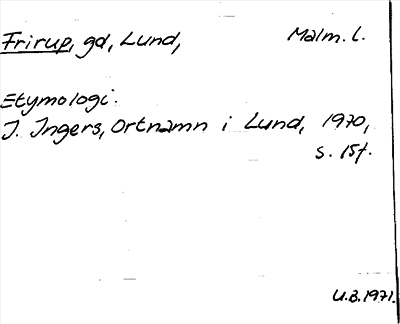 Frirup, gd, Lund, Malm. l.
Etymologi.
I. Ingers, Ortnamn i Lund, 1970,
s. 15f.
U.B.1971.